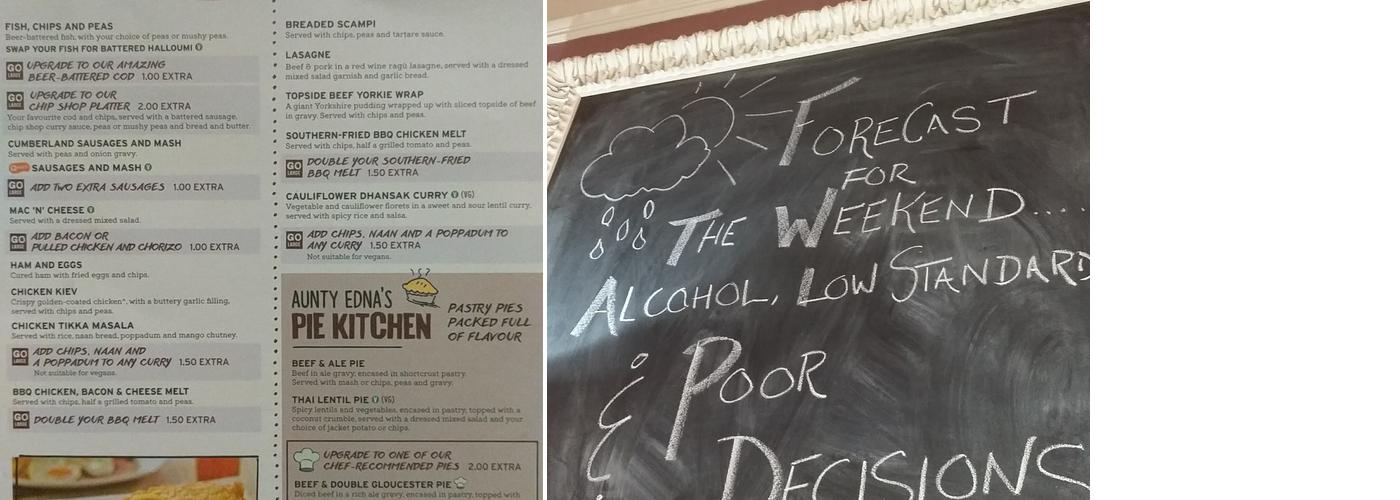 FISH, CHIPS AND PEAS
Beer-battered fish, with your choice of peas or mushy peas.
SWAP YOUR FISH FOR BATTERED HALLOUMI V
GO LARGE UPGRADE TO OUR AMAZING
BEER-BATTERED COD 1.00 EXTRA
GO LARGE UPGRADE TO OUR
CHIP SHOP PLATTER 2.00 EXTRA
Your favourite cod and chips, served with a battered sausage,
chip shop curry sauce, peas or mushy peas and bread and butter.
CUMBERLAND SAUSAGES AND MASH
Served with peas and onion gravy.
SAUSAGES AND MASH V
GO LARGE ADD TWO EXTRA SAUSAGES 1.00 EXTRA
MAC 'N' CHEESE V
Served with a dressed mixed salad.
GO LARGE ADD BACON OR
PULLED CHICKEN AND CHORIZO 1.00 EXTRA
HAM AND EGGS
Cured ham with fried eggs and chips.
CHICKEN KIEV
Crispy golden-coated chicken^, with a buttery garlic filling,
served with chips and peas.
CHICKEN TIKKA MASALA
Served with rice, naan bread, poppadum and mango chutney.
GO LARGE ADD CHIPS, NAAN AND
A POPPADUM TO ANY CURRY 1.50 EXTRA
Not suitable for vegans.
BBQ CHICKEN, BACON & CHEESE MELT
Served with chips, half a grilled tomato and peas.
GO LARGE DOUBLE YOUR BBQ MELT 1.50 EXTRA
BREADED SCAMPI
Served with chips, peas and tartare sauce.
LASAGNE
Beef & pork in a red wine ragù lasagne, served with a dressed
mixed salad garnish and garlic bread.
TOPSIDE BEEF YORKIE WRAP
A giant Yorkshire pudding wrapped up with sliced topside of beef
in gravy. Served with chips and peas.
SOUTHERN-FRIED BBQ CHICKEN MELT
Served with chips, half a grilled tomato and peas.
GO LARGE DOUBLE YOUR SOUTHERN-FRIED
BBQ MELT 1.50 EXTRA
CAULIFLOWER DHANSAK CURRY V (VG)
Vegetable and cauliflower florets in a sweet and sour lentil curry,
served with spicy rice and salsa.
GO LARGE ADD CHIPS, NAAN AND A POPPADUM TO
ANY CURRY 1.50 EXTRA
Not suitable for vegans.
AUNTY EDNA'S
PIE KITCHEN
PASTRY PIES
PACKED FULL
OF FLAVOUR
BEEF & ALE PIE
Beef in ale gravy, encased in shortcrust pastry.
Served with mash or chips, peas and gravy.
THAI LENTIL PIE V (VG)
Spicy lentils and vegetables, encased in pastry, topped with a
coconut crumble, served with a dressed mixed salad and your
choice of jacket potato or chips.
UPGRADE TO ONE OF OUR
CHEF-RECOMMENDED PIES 2.00 EXTRA
BEEF & DOUBLE GLOUCESTER PIE
Diced beef in a rich ale gravy, encased in pastry, topped with
FORECAST
FOR
THE WEEKEND....
ALCOHOL, LOW STANDARD
& POOR
DECISIONS